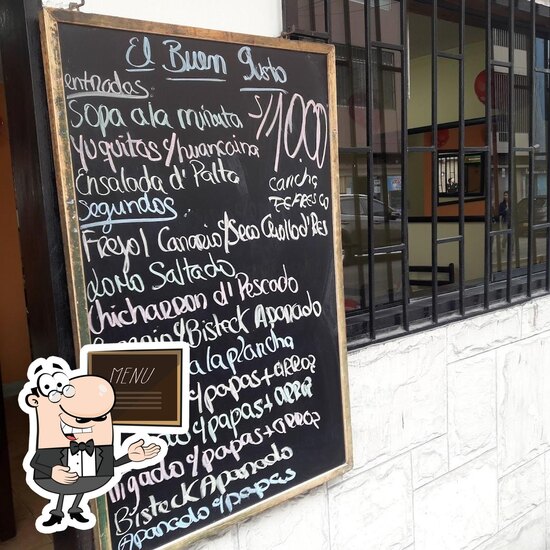 El Buen gusto
entradas
Sopa a la minuta
Yuquitas c/huancaina
Ensalada d' Palta
S/ 1000
cancha
refresco
Segundos
Freyol Canario c/Seco Criollo d' Res
Lomo Saltado
Chicharron d' Pescado
c/Bisteck Apanado
a la plancha
c/papas+arroz
c/papas+arroz
c/papas+arroz
Higado c/papas
Bisteck Apanado
Apanado c/papas
MENU